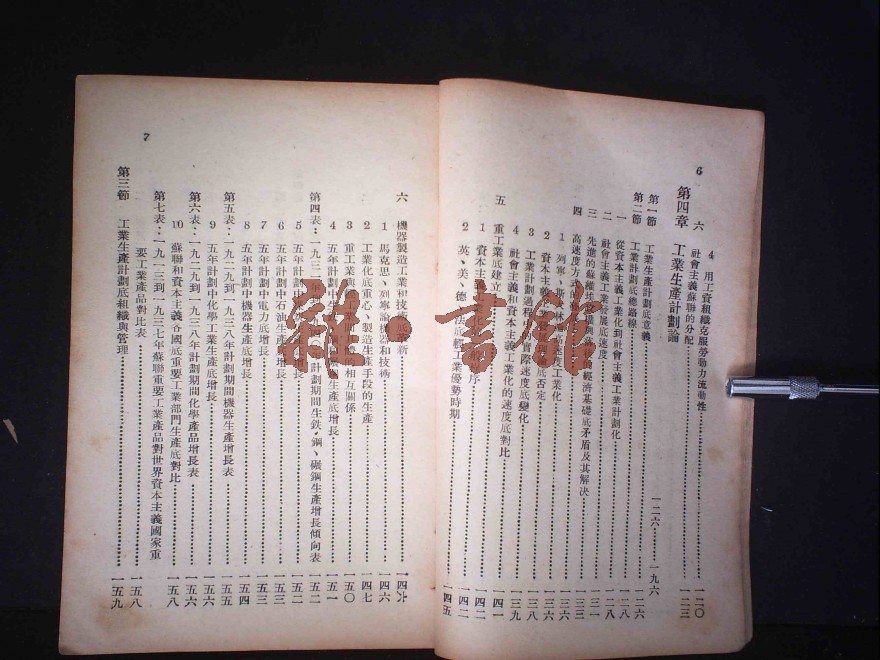 6
4 用工資組織克服勞動力流動性 一二〇
六 社會主義蘇聯的分配 一二三
第四章 工業生產計劃論 一二六……一九六
第一節 工業生產計劃底意義 一二六
第二節 工業計劃底總路線 一二八
一 從資本主義工業化到社會主義工業計劃化 一二八
二 社會主義工業發展底速度
三 先進的蘇維埃 經濟基礎底矛盾及其解決
四 高速度方式的
1 列寧、斯 林 速度工業化 一三六
2 資本主義 底否定 一三六
3 工業計劃過程 實際速度底變化 一三七
4 社會主義和資本主義工業化的速度底對比 一三九
五 重工業底建立 一四一
1 資本主義 序 一四二
2 英、美、德、法底輕工業優勢時期 一四五
7
六 機器製造工業和技術底革新 一四六
1 馬克思、列寧論機器和技術 一四六
2 工業化底重心、製造生產手段的生產 一四七
3 重工業與 的相互關係 一五〇
4 五年計劃中生 生產底增長 一五一
第四表：一九三 計劃期間生鉄、鋼、碾鋼生產增長傾向表 一五二
5 五年計劃 生產底增長 一五二
6 五年計劃中石油生產底增長 一五三
7 五年計劃中電力底增長 一五三
8 五年計劃中機器生產底增長 一五四
第五表：一九二九到一九三八年計劃期間機器生產增長表 一五五
9 五年計劃中化學工業生產底增長 一五六
第六表：一九二九到一九三八年計劃期間化學產品增長表 一五六
10 蘇聯和資本主義各國底重要工業部門生產底對比 一五八
第七表：一九一三到一九三七年蘇聯重要工業產品對世界資本主義國家重
要工業產品對比表 一五八
第三節 工業生產計劃底組織與管理 一五九
雜·書館